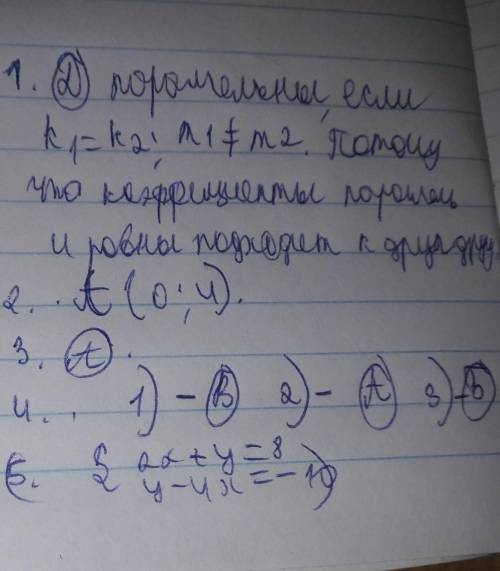 1. Д поральельны, если
k1=k2; m1≠m2. Потому
что коэффициенты
и равны подходит к друг другу
2. A (0; 4).
3. A.
4. 1) - В 2) - A 3) - Б
5. { 2x + y = 8
y - 4x = -10